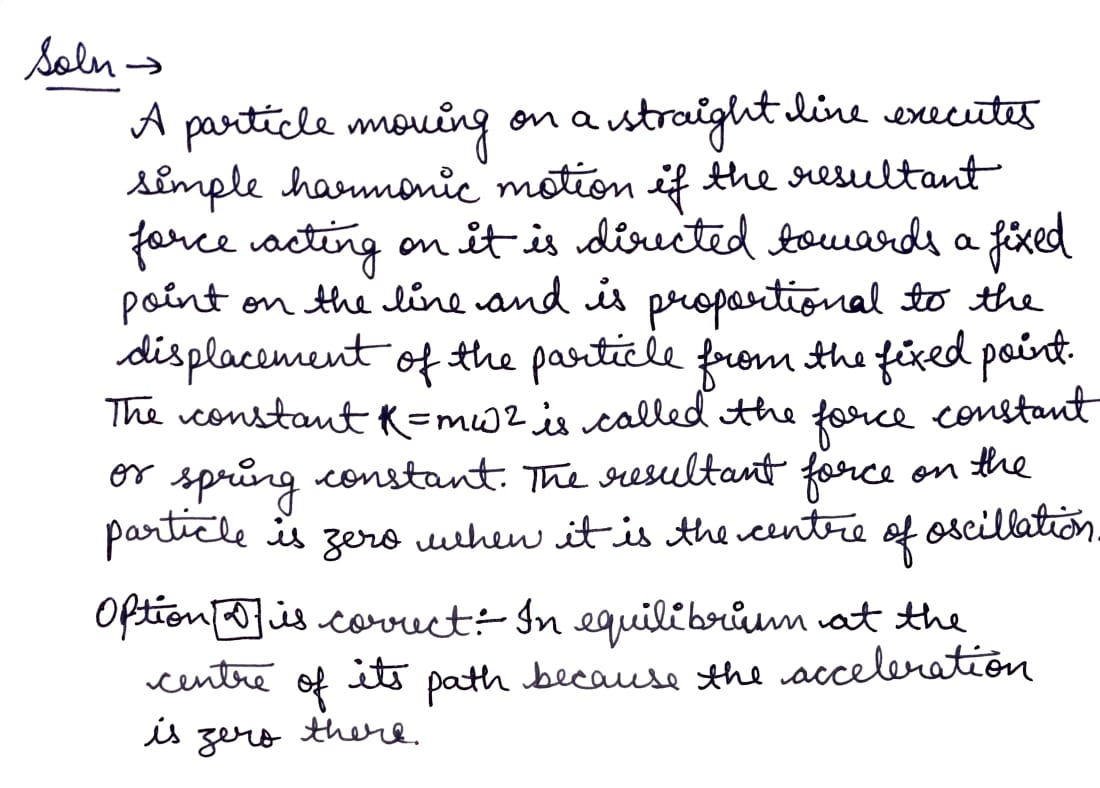 Soln →
A particle moving on a straight line executes
simple harmonic motion if the resultant
force acting on it is directed towards a fixed
point on the line and is proportional to the
displacement of the particle from the fixed point.
The constant K=mω2 is called the force constant
or spring constant. The resultant force on the
particle is zero when it is the centre of oscillation.
Option D is correct:- In equilibrium at the
centre of its path because the acceleration
is zero there.